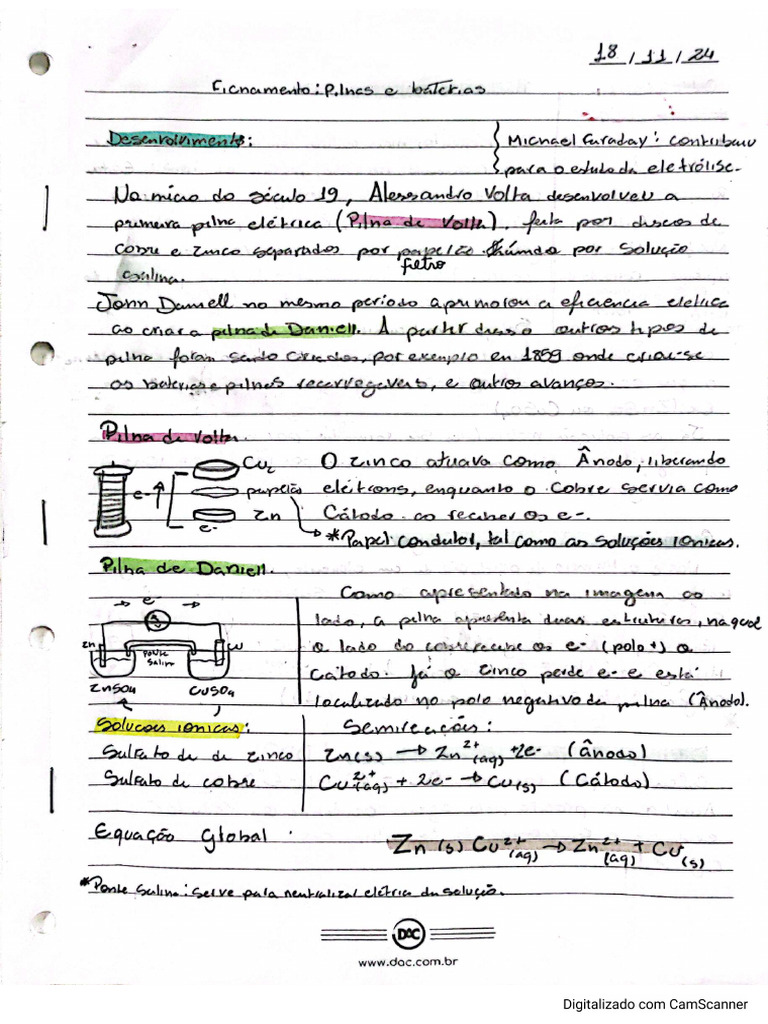 18/11/24
Fichamento: Pilhas e baterias
Desenvolvimento:
Michael Faraday: contribuiu
para o estudo da eletrólise.
No início do século 19, Alessandro Volta desenvolveu a
primeira pilha elétrica (Pilha de Volta), feita por discos de
cobre e zinco separados por papelão úmido por solução
filtro
salina.
John Daniell no mesmo período aprimorou a eficiência elétrica
ao criar a pilha de Daniell. A partir disso outros tipos de
pilha foram sendo criados, por exemplo en 1859 onde criou-se
as baterias e pilhas recarregáveis, e outros avanços.
Pilha de Volta.
e-
Cu2
papelão
Zn
e-
O zinco atuava como Ânodo, liberando
elétrons, enquanto o cobre servia como
Cátodo ao receber os e-.
*Papel condutor, tal como as soluções iônicas.
Pilha de Daniell.
e-
Zn
Ponte
Salina
Cu
ZnSO4
CuSO4
Como apresentado na imagem ao
lado, a pilha apresenta duas estruturas, na qual
o lado do cobre recebe os e- (polo +) o
Cátodo. Já o zinco perde e- e está
localizado no polo negativo da pilha (Ânodo).
Soluções iônicas:
Sulfato de de zinco
Sulfato de cobre
Semireações:
Zn(s) → Zn2+(aq) +2e- (ânodo)
Cu2+(aq) + 2e- → Cu(s) (Cátodo)
Equação Global
Zn (s) Cu2+(aq) → Zn2+(aq) + Cu(s)
*Ponte Salina: serve para neutralizar elétrica da solução.
DAC
www.dac.com.br
Digitalizado com CamScanner